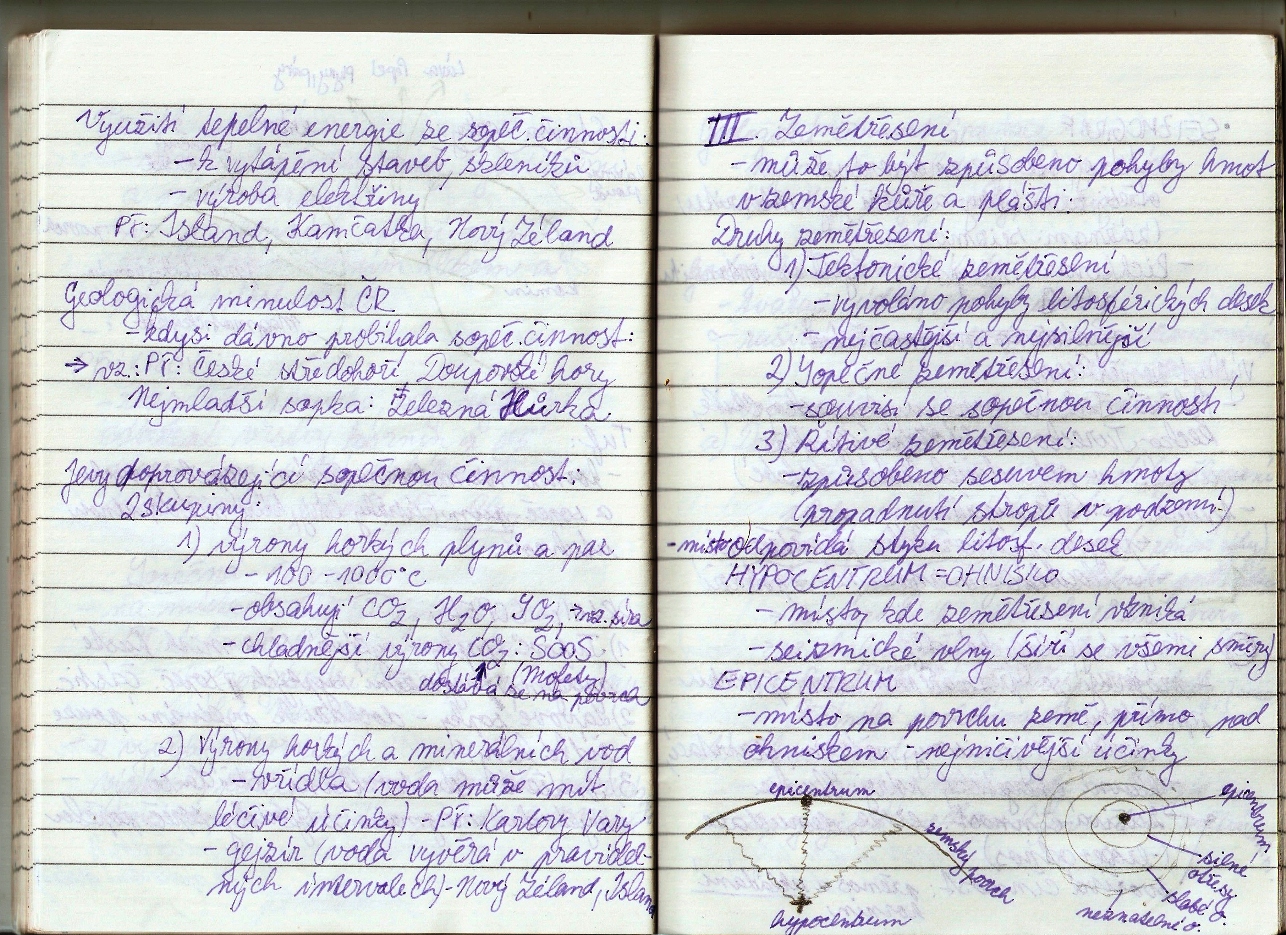 Využití tepelné energie ze sopeč. činnosti:
- k vytápění staveb, skleníků
- výroba elektřiny
Př: Island, Kamčatka, Nový Zéland
Geologická minulost ČR
- kdysi dávno probíhala sopeč. činnost:
→ vz.: Př: České středohoří, Doupovské hory
Nejmladší sopka: Železná Hůrka
Jevy doprovázející sopečnou činnost:
2 skupiny:
1) výrony horkých plynů a par
- 100 - 1000°C
- obsahují CO2, H2O, SO2, → vz. síra
- chladnější výrony CO2: SOOS
(Mofety)
dostává se na povrch
2) Výrony horkých a minerálních vod
- vřídla (voda může mít
léčivé účinky) - Př: Karlovy Vary
- gejzír (voda vyvěrá v pravidel-
ných intervalech) - Nový Zéland, Island
III. Zemětřesení
- může to být způsobeno pohyby hmot
v zemské kůře a plášti.
Druhy zemětřesení:
1) Tektonické zemětřesení
- vyvoláno pohyby litosférických desek
- nejčastější a nejsilnější
2) Sopečné zemětřesení:
- souvisí se sopečnou činností
3) Řítivé zemětřesení:
- způsobeno sesuvem hmoty
(propadnutí stropů v podzemí)
- místo odpovídá styku litosf. desek
HYPOCENTRUM = OHNISKO
- místo, kde zemětřesení vzniká
- seizmické vlny (šíří se všemi směry)
EPICENTRUM
- místo na povrchu země, přímo nad
ohniskem - nejničivější účinky
epicentrum
zemský povrch
hypocentrum
epicentrum
silné otřesy
slabé o.
neznatelné o.